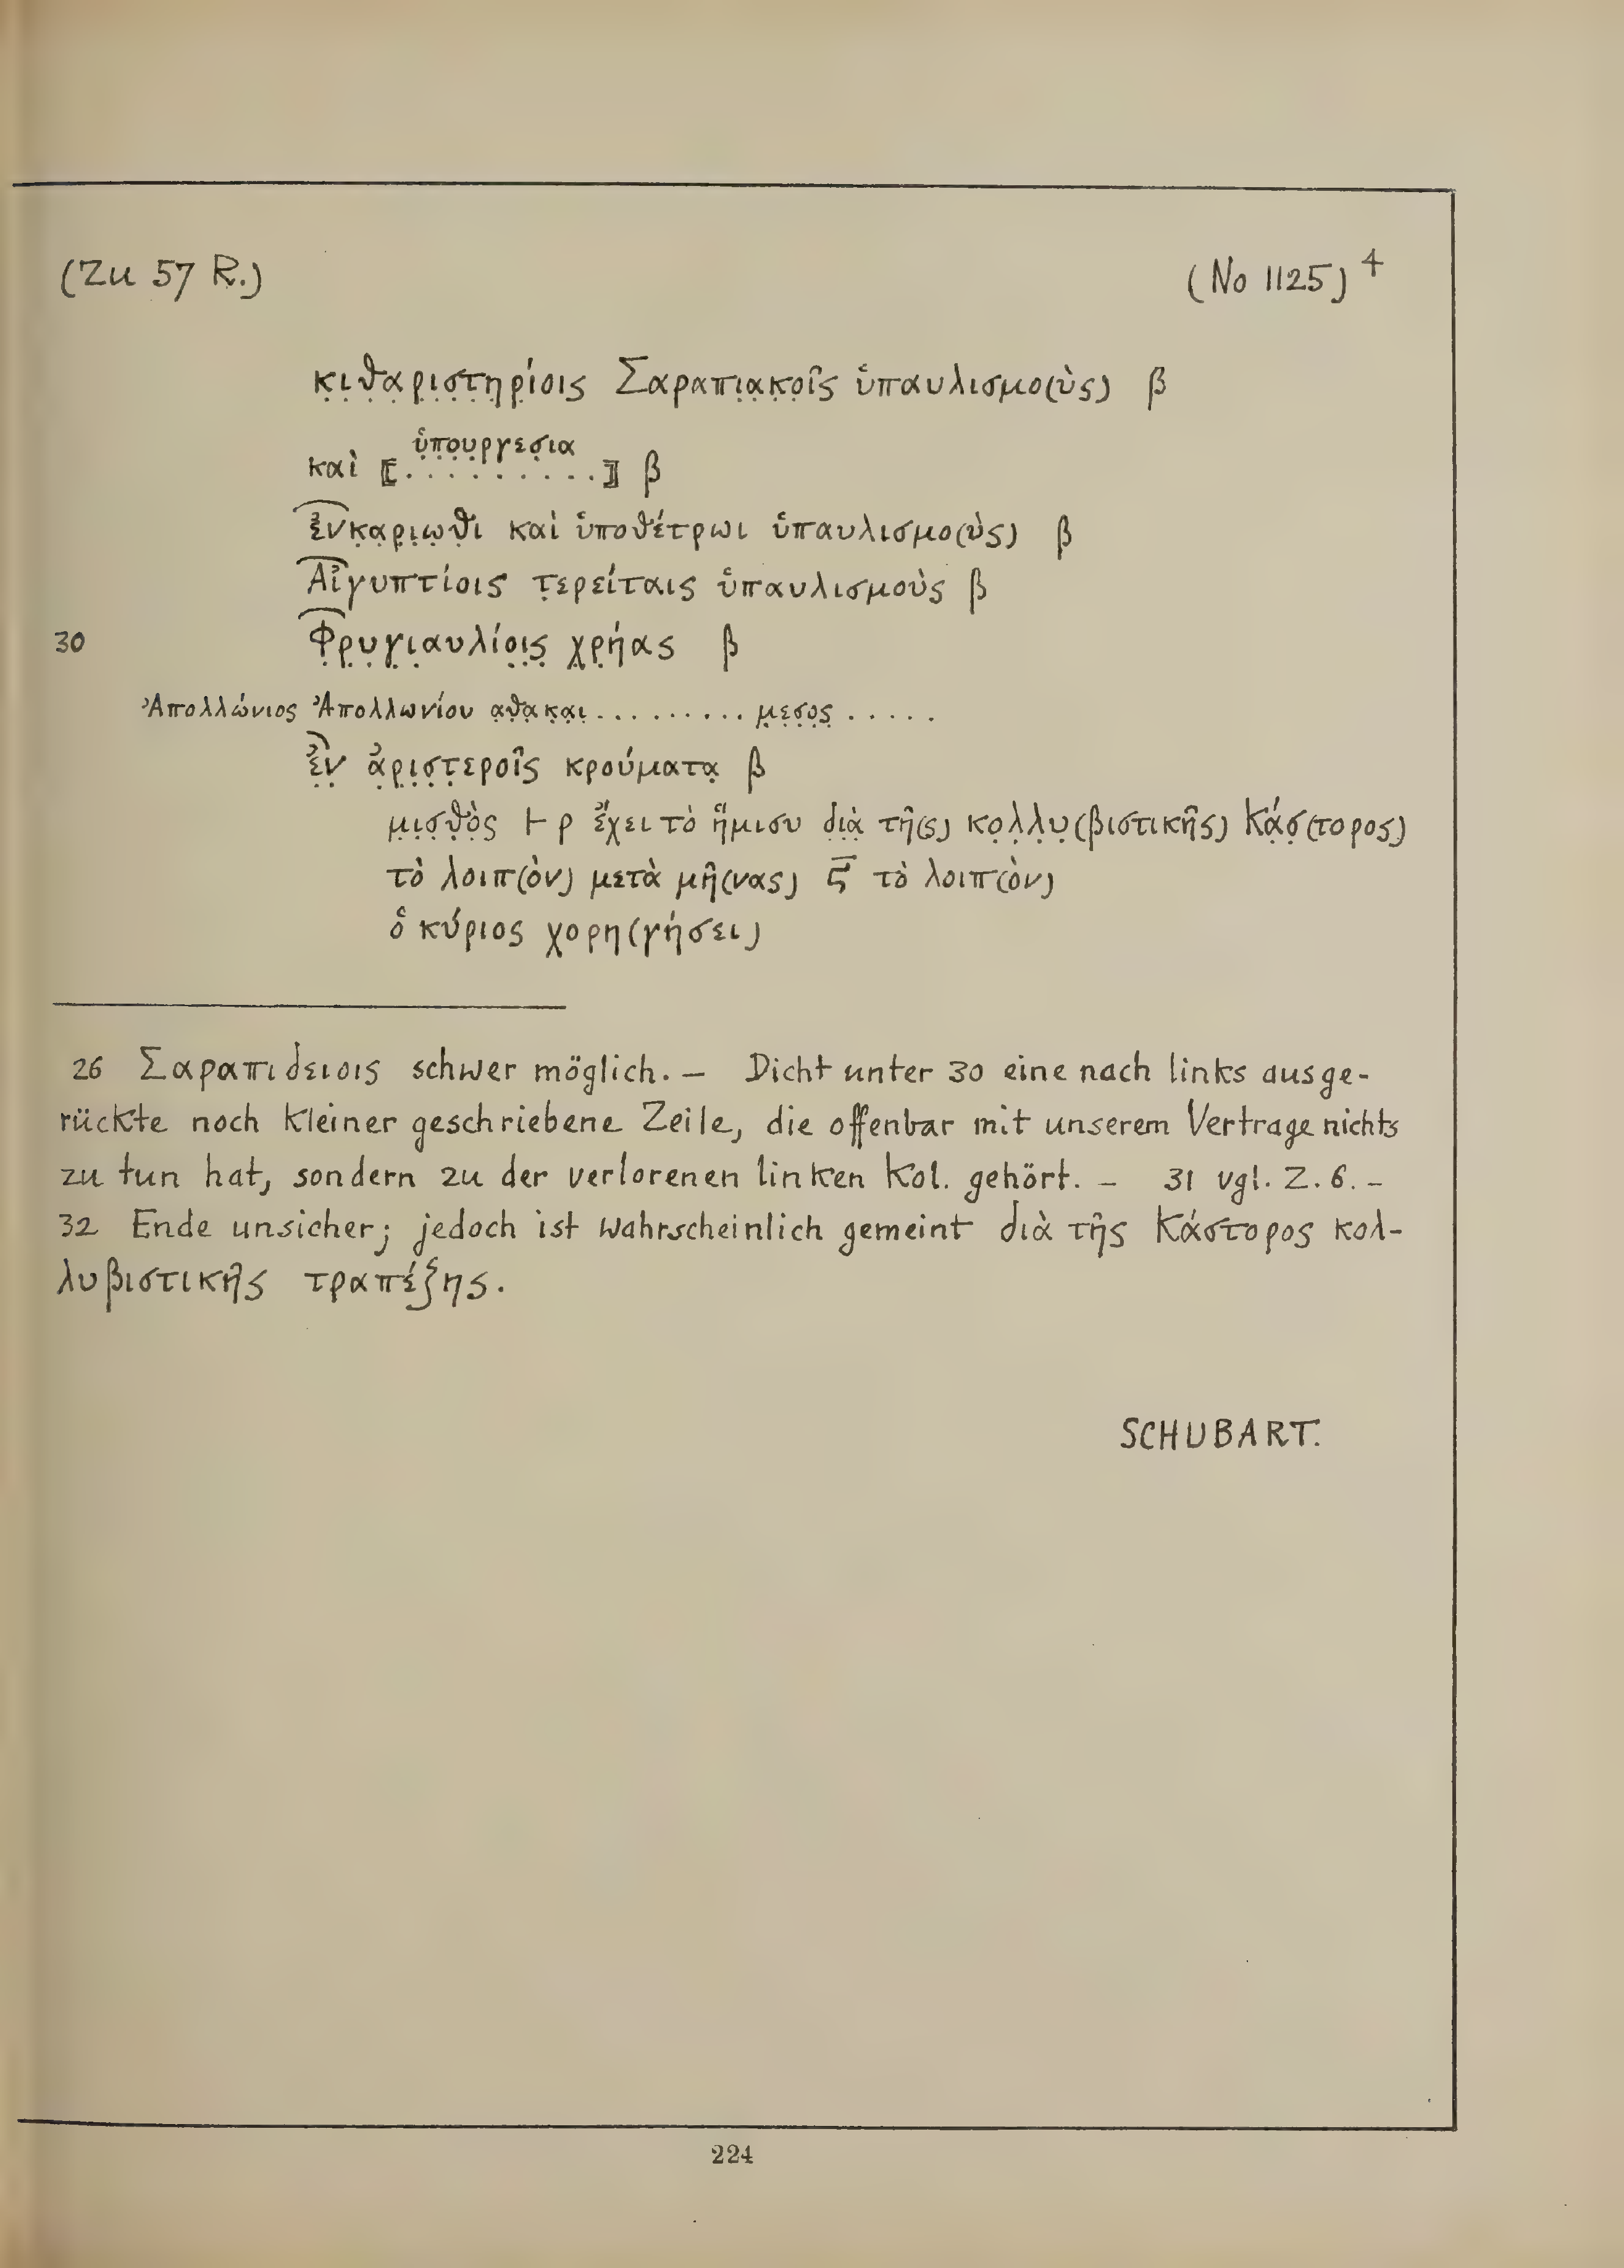 (Zu 57 R.) (No 1125) 4
κ̣ι̣θ̣α̣ρ̣ι̣σ̣τ̣η̣ρ̣ίοις Σαραπι̣α̣κ̣ο̣ῖς ὑπαυλισμο(ὺς) β
ὑ̣π̣ο̣υ̣ργεσ̣ια
καὶ ⟦. . . . . . . . .⟧ β
ἐνκ̣α̣ρ̣ι̣ω̣θ̣ι καὶ ὑποθέτρωι ὑπαυλισμο(ὺς) β
Αἰγυπτίοις τ̣ερείταις ὑπαυλισμοὺς β
30 Φ̣ρ̣υ̣γ̣ι̣αυλίο̣ι̣ς̣ χ̣ρ̣ήας β
Ἀπολλώνιος Ἀπολλωνίου α̣θ̣α̣κ̣α̣ι̣ . . . . . . . . . μ̣ε̣σ̣ο̣ς̣ . . . . .
ἐ̣ν̣ ἀ̣ρ̣ι̣σ̣τ̣εροῖς κρούματα̣ β
μ̣ι̣σ̣θ̣ὸ̣ς ⊢ ρ ἔχει τὸ ἥμισυ δι̣ὰ̣ τῆ(ς) κο̣λ̣λ̣υ̣(βιστικῆς) Κά̣σ̣(τορος)
τὸ λοιπ(ὸν) μετὰ μῆ(νας) ϛ̅ τὸ λοιπ(ὸν)
ὁ κύριος χορη(γήσει)
26 Σαραπιδειοις schwer möglich. – Dicht unter 30 eine nach links ausge-
rückte noch kleiner geschriebene Zeile, die offenbar mit unserem Vertrage nichts
zu tun hat, sondern zu der verlorenen linken Kol. gehört. – 31 vgl. Z. 6. –
32 Ende unsicher; jedoch ist wahrscheinlich gemeint διὰ τῆς Κάστορος κολ-
λυβιστικῆς τραπέζης.
SCHUBART.
224